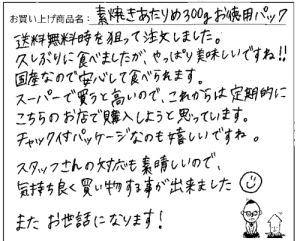 お買い上げ商品名：素焼きあたりめ300gお徳用パック
送料無料時を狙って注文しました。
久しぶりに食べましたが、やっぱり美味しいですね!!
国産なので安心して食べられます。
スーパーで買うと高いので、これからは定期的に
こちらのお店で購入しようと思っています。
チャック付パッケージなのも嬉しいですね。
スタッフさんの対応も素晴しいので、
気持ち良く買い物する事が出来ました
また お世話になります!